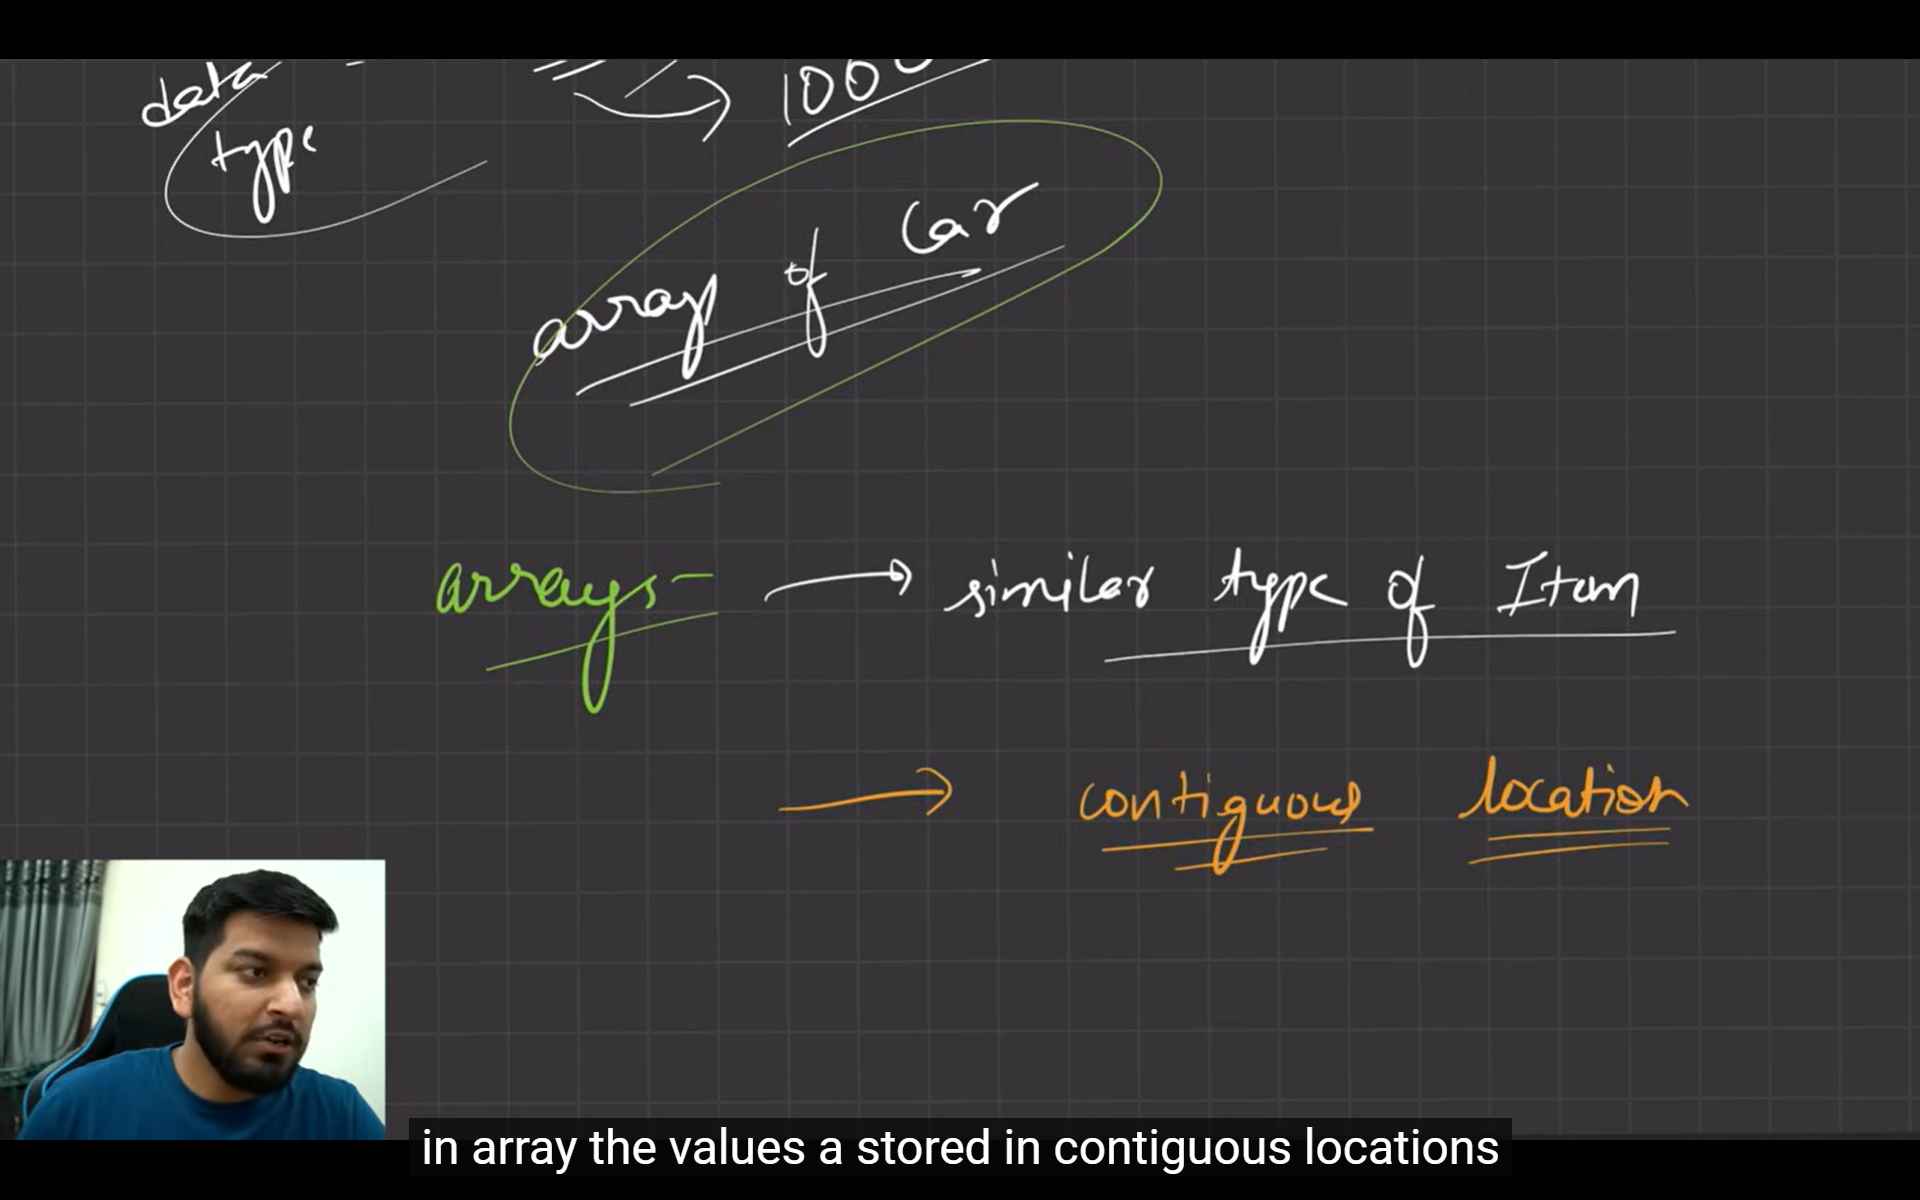 data
type
array of Car
arrays - → similar type of Item
→ contiguous location
in array the values a stored in contiguous locations